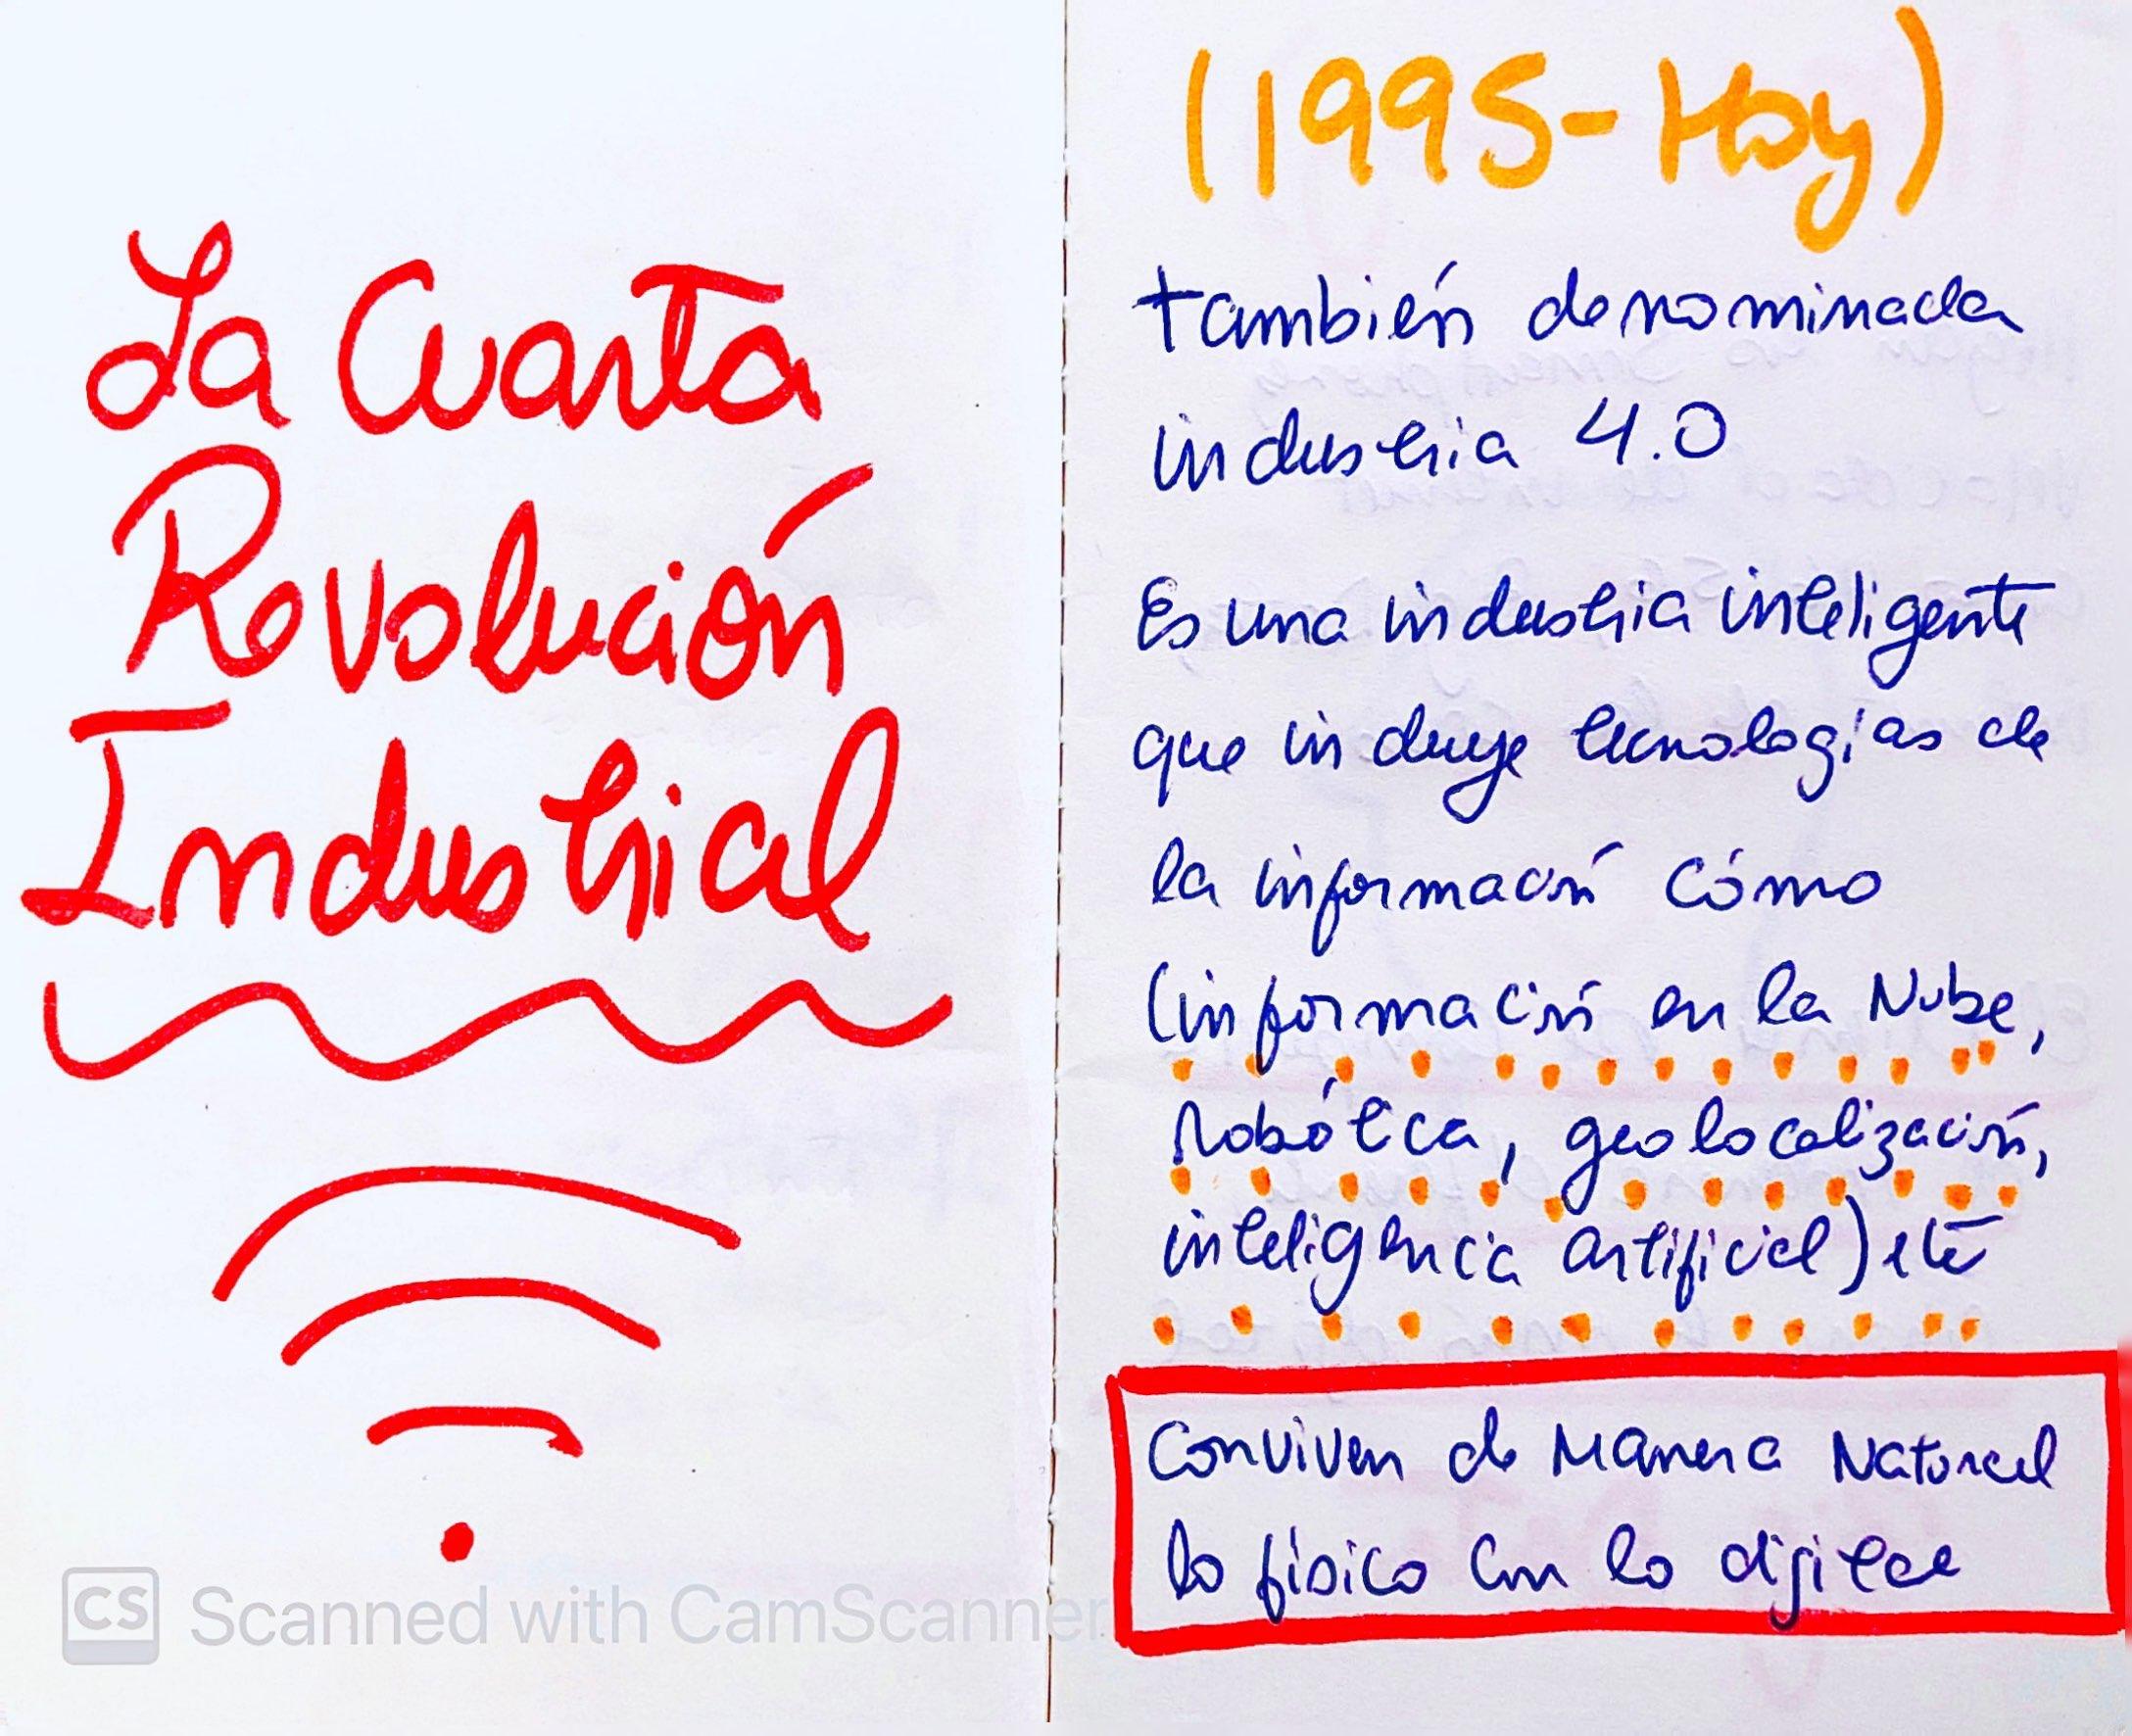 La Cuarta
Revolución
Industrial
(1995-Hoy)
también denominada
industria 4.0
Es una industria inteligente
que incluye tecnologías de
la información cómo
(información en la Nube,
robótica, geolocalización,
inteligencia artificial) etc
Conviven de Manera Natural
lo físico con lo digital
CS Scanned with CamScanner